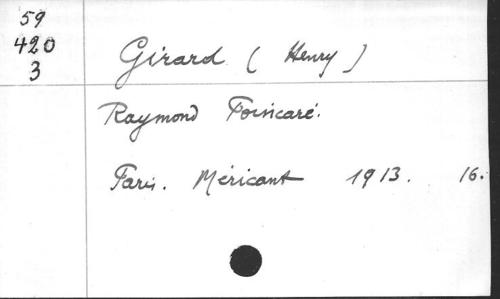 59
420
3
Girard (Henry)
Raymond Poincaré.
Paris. Méricant 1913. 16.